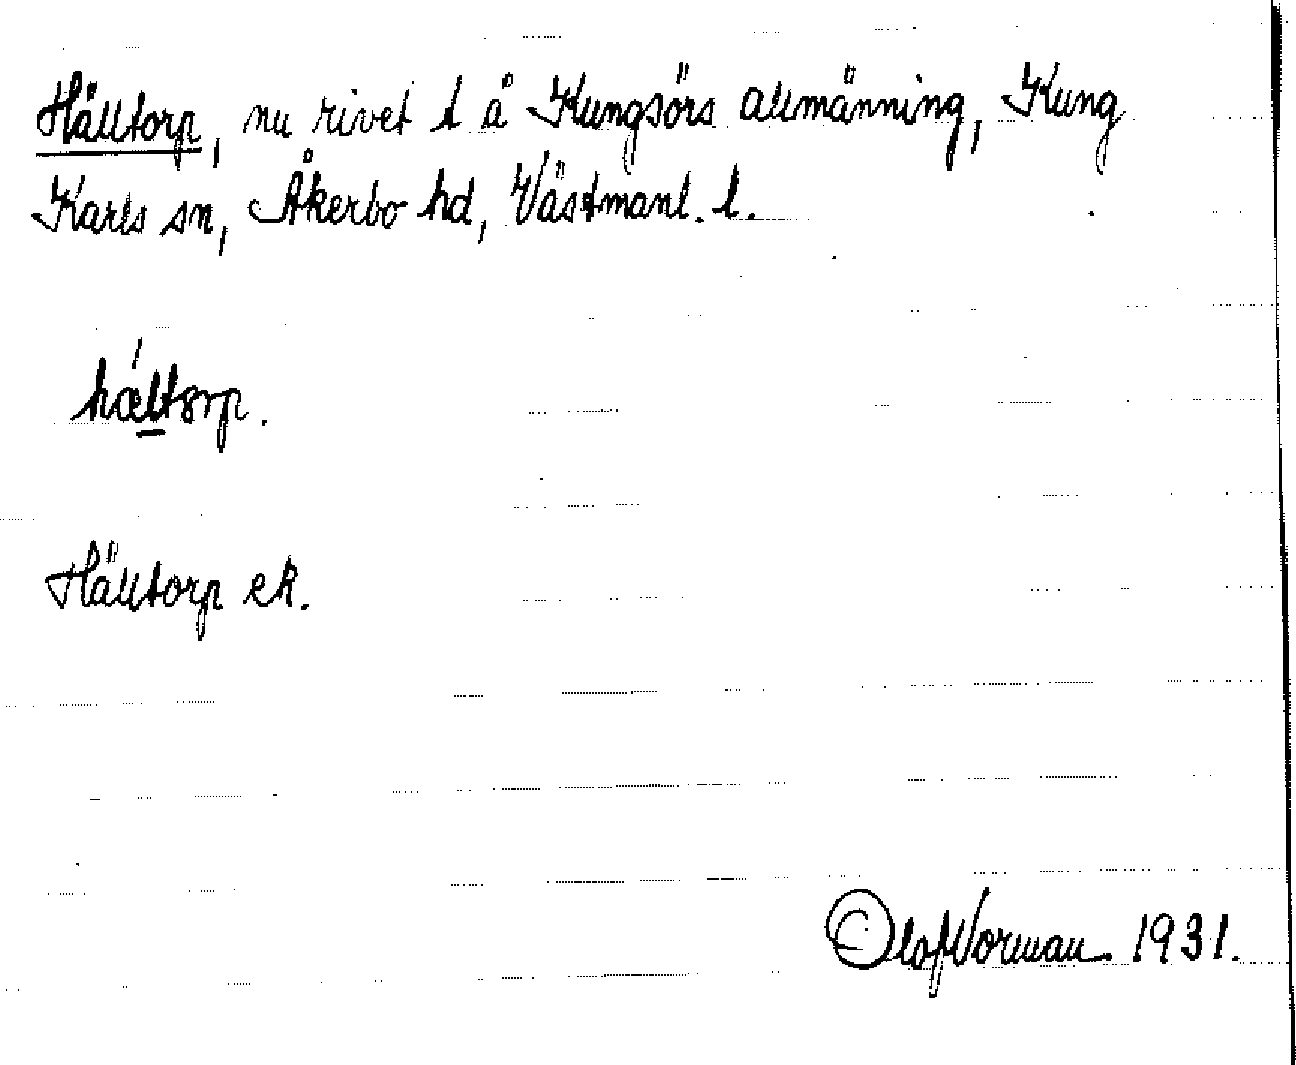 Hälltorp, nu rivet t å Kungsörs allmänning, Kung
Karls sn, Åkerbo hd, Västmanl. l.
hæ̀lltorp.
Hälltorp ek.
Olof Norman. 1931.